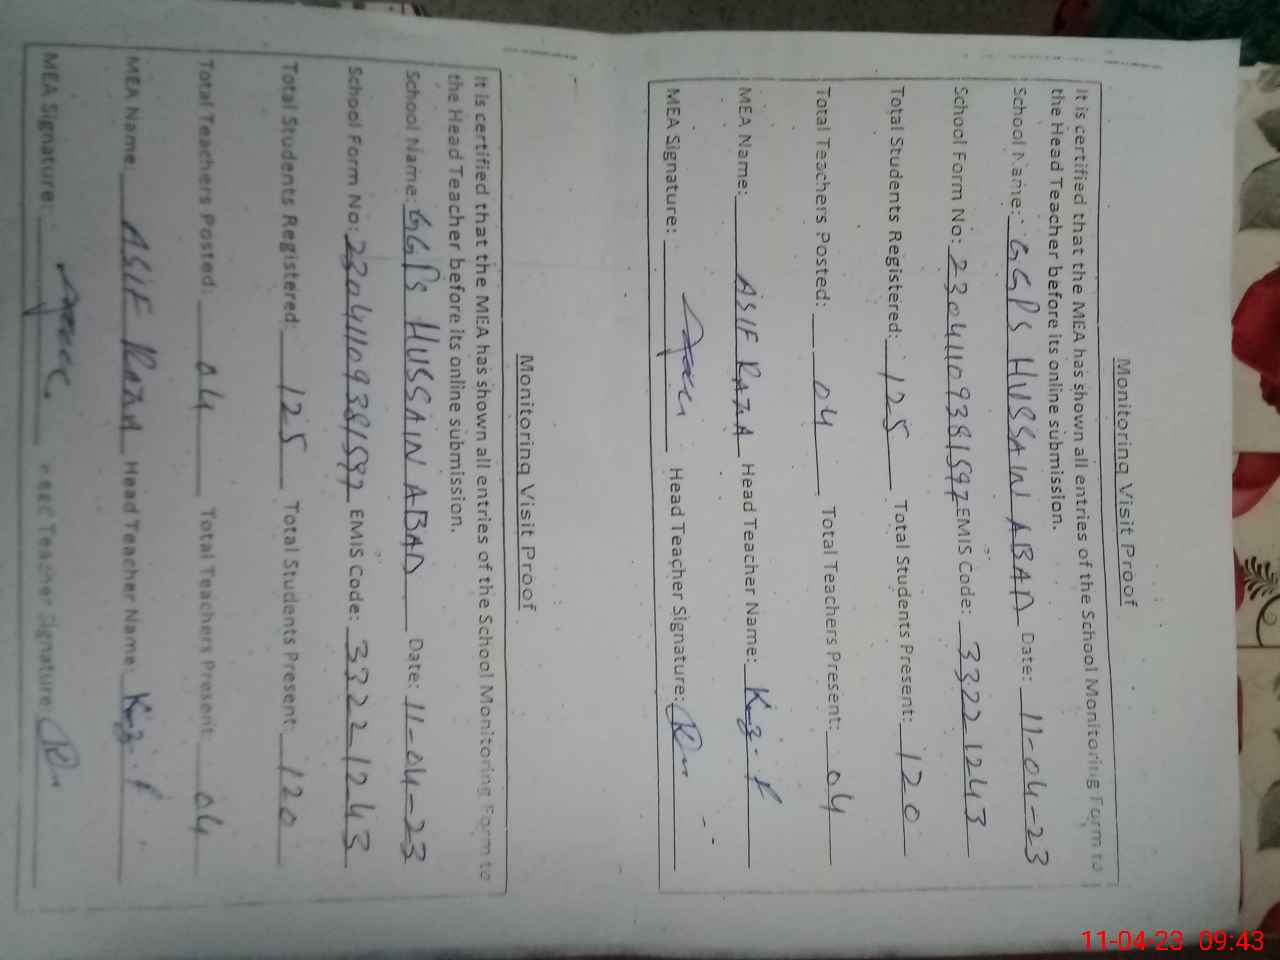 Monitoring Visit Proof
It is certified that the MEA has shown all entries of the School Monitoring Form to
the Head Teacher before its online submission.
School Name: GGPS HUSSAIN ABAD Date: 11-04-23
School Form No: 23041109381597 EMIS Code: 33221243
Total Students Registered: 125 Total Students Present: 120
Total Teachers Posted: 04 Total Teachers Present: 04
MEA Name: ASIF RAZA Head Teacher Name: K.z.f
MEA Signature: Head Teacher Signature:
Monitoring Visit Proof
It is certified that the MEA has shown all entries of the School Monitoring Form to
the Head Teacher before its online submission.
School Name: GGPS HUSSAIN ABAD Date: 11-04-23
School Form No: 23041109381597 EMIS Code: 33221243
Total Students Registered: 125 Total Students Present: 120
Total Teachers Posted: 04 Total Teachers Present: 04
MEA Name: ASIF RAZA Head Teacher Name: K.z.f
MEA Signature: Head Teacher Signature:
11-04-23 09:43